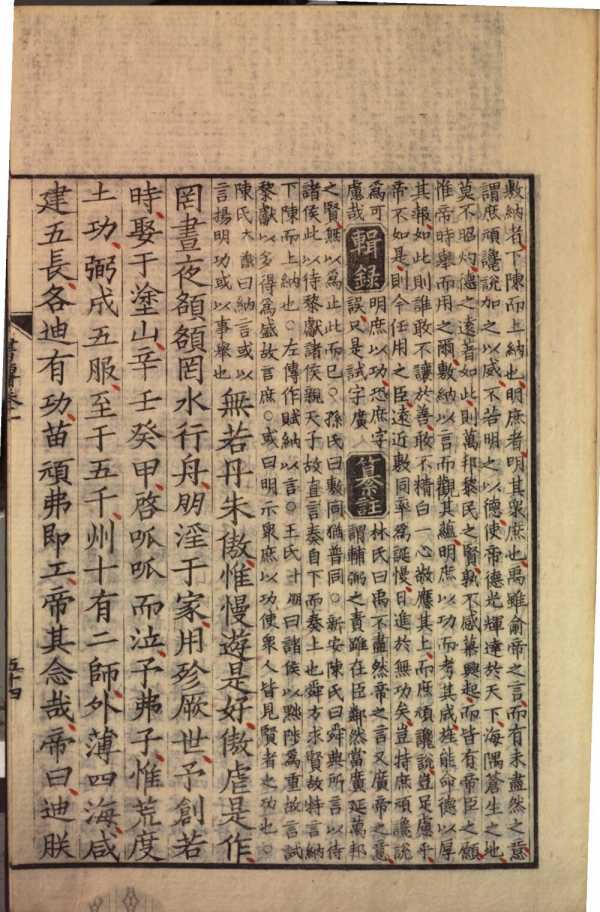 敷納者下陳而上納也明庶者明其衆庶也禹雖俞帝之言而有未盡然之意
謂庶頑讒說加之以威不若明之以德使帝德光輝達於天下海隅蒼生之地
莫不昭灼德之遠著如此則萬邦黎民之賢孰不感慕興起而皆有帝臣之願
惟帝時舉而用之爾敷納以言而觀其蘊明庶以功而考其成旌能命德以厚
其報如此則誰敢不讓於善敢不精白一心敬應其上而庶頑讒說豈足慮乎
帝不如是則今任用之臣遠近敷同率爲誕慢日進於無功矣豈特庶頑讒說
爲可
慮哉
輯錄
明庶以功恐庶字
誤只是試字廣
纂註
林氏曰禹不盡然帝之言又廣帝之意
謂輔弼之責雖在臣鄰然當廣延萬邦
之賢無以爲止此而已○孫氏曰敷同猶普同○新安陳氏曰舜典所言以待
諸侯此以待黎獻諸侯親天子故直言奏自下而奏上也舜方求賢故特言納
下陳而上納也○左傳作賦納以言○王氏十朋曰諸侯以黜陟爲重故言試
黎獻以多得爲盛故言庶○或曰明示衆庶以功使衆人皆見賢者之功也○
陳氏大猷曰納言或以
言揚明功或以事舉也
無若丹朱傲惟慢遊是好傲虐是作
罔晝夜頟頟罔水行舟朋淫于家用殄厥世予創若
時娶于塗山辛壬癸甲啓呱呱而泣予弗子惟荒度
土功弼成五服至于五千州十有二師外薄四海咸
建五長各迪有功苗頑弗即工帝其念哉帝曰迪朕
書傳卷一
五十四